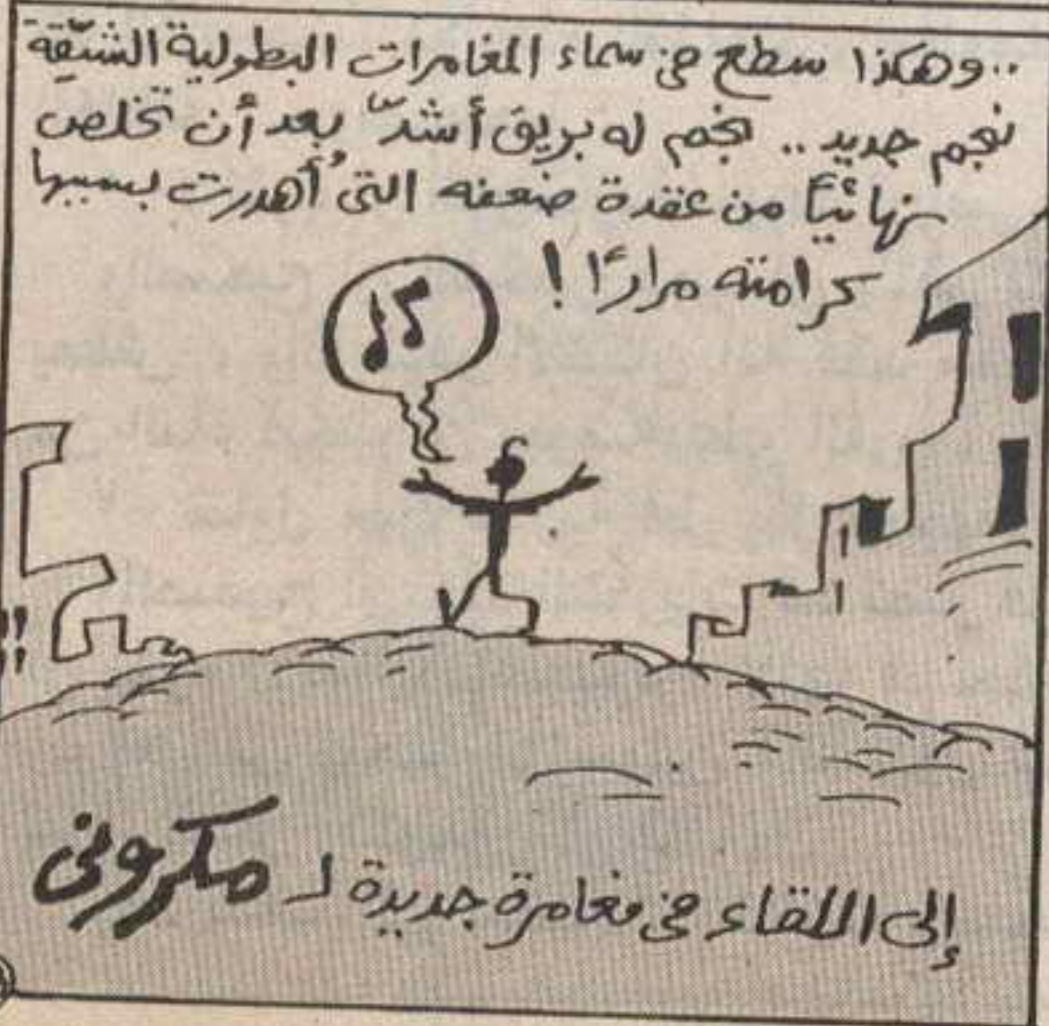 ..وهكذا سطع في سماء المغامرات البطولية الشيّقة
نجم جديد .. نجم له بريق أشدّ بعد أن تخلص
نهائيًا من عقدة ضعفه التي أُهدرت بسببها
كرامته مرارًا !
إلى اللقاء في مغامرة جديدة لـ مكروني